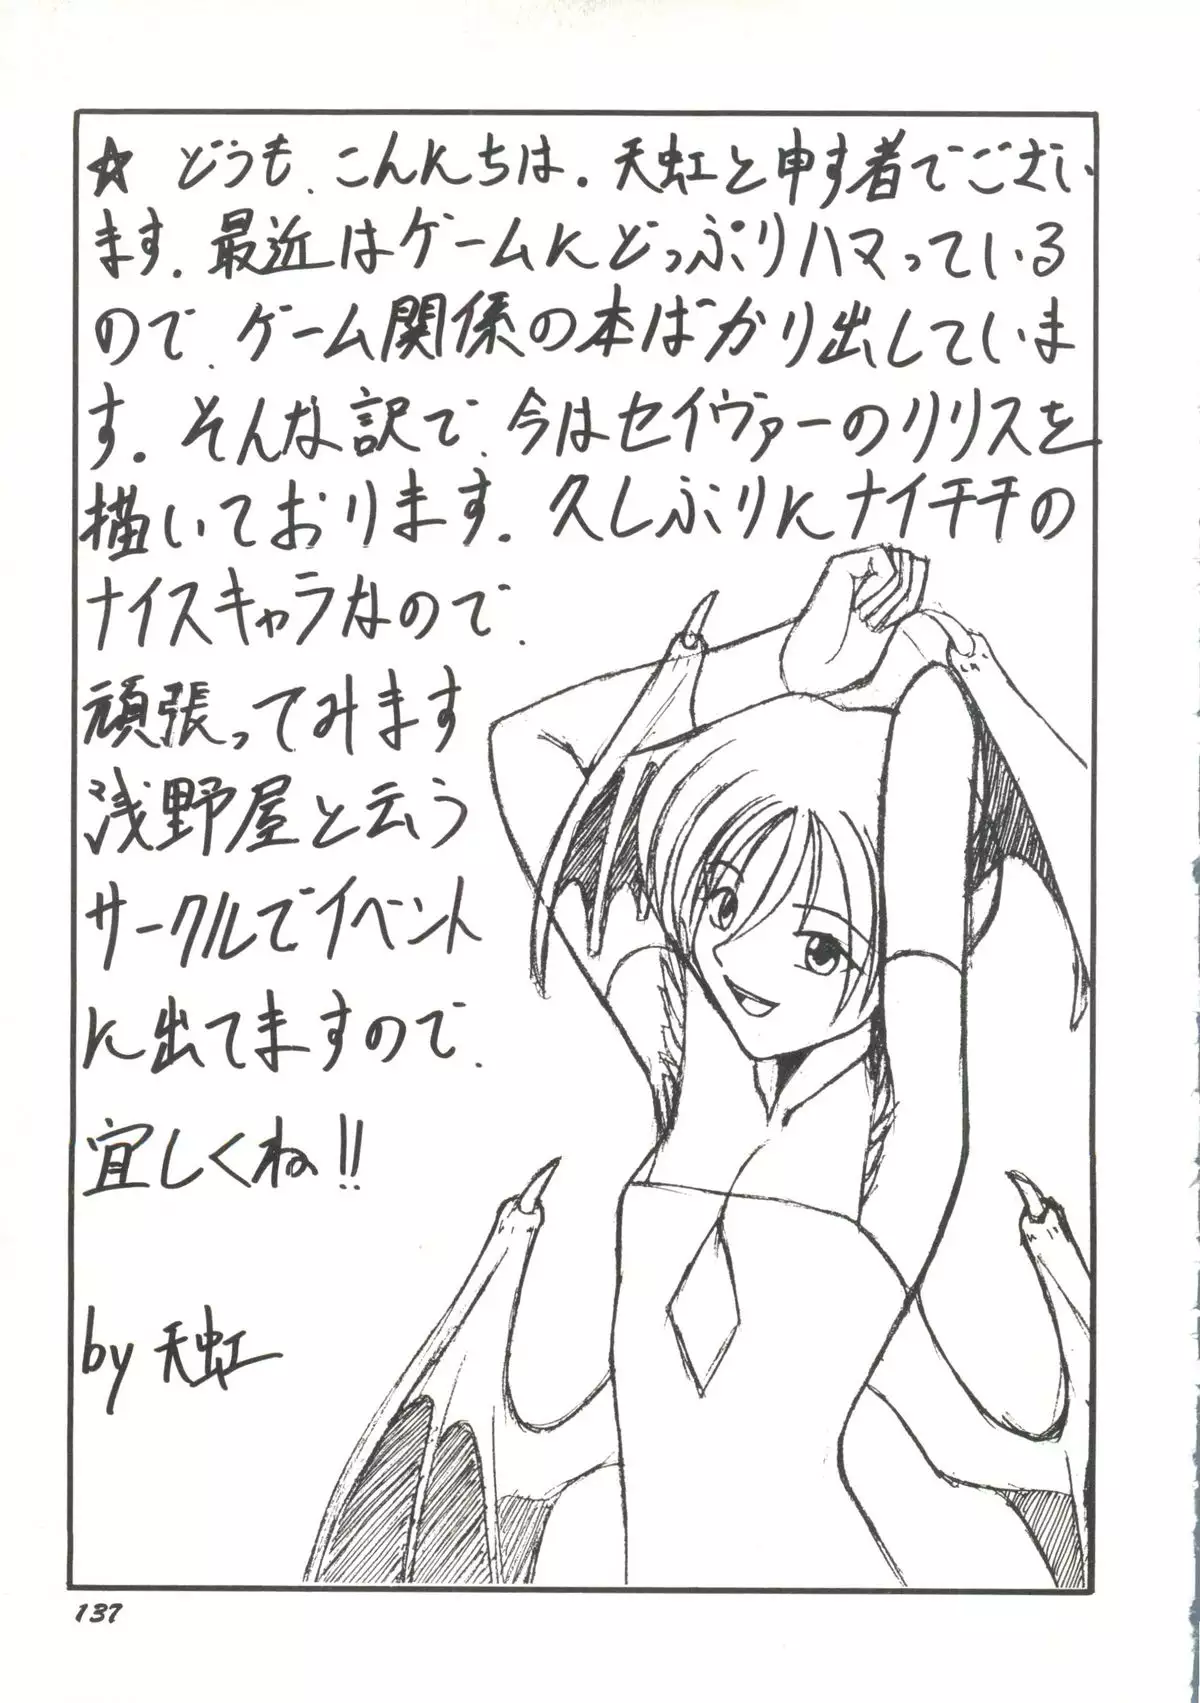 ☆ どうも、こんにちは。天虹と申す者でござい
ます。最近はゲームにどっぷりハマっている
ので、ゲーム関係の本ばかり出していま
す。そんな訳で、今はセイヴァーのリリスを
描いております。久しぶりにナイチチの
ナイスキャラなので、
頑張ってみます
浅野屋と云う
サークルでイベント
に出てますので、
宜しくね!!
by 天虹
137